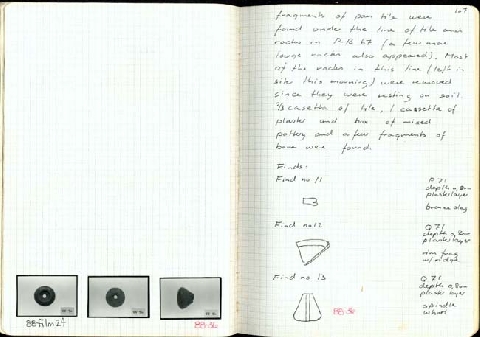 fragments of pan tile were
found under the line of tile and
rocks in (a few more
large ones also appeared). Most
of the rocks in this line (left in
situ this morning) were removed
since they were resting on soil.
cassetta of tile, 1 cassetta of
plaster and box of mixed
pottery and a few fragments of
bone were found.
Finds:
Find no 11
Q 71
depth
plaster layer
bronze slag
Find no 12
Q 71
depth
plaster layer
rim frag
Find no 13
Q 71
depth
plaster layer
spindle
whorl
88-36
88 film 2
88-36